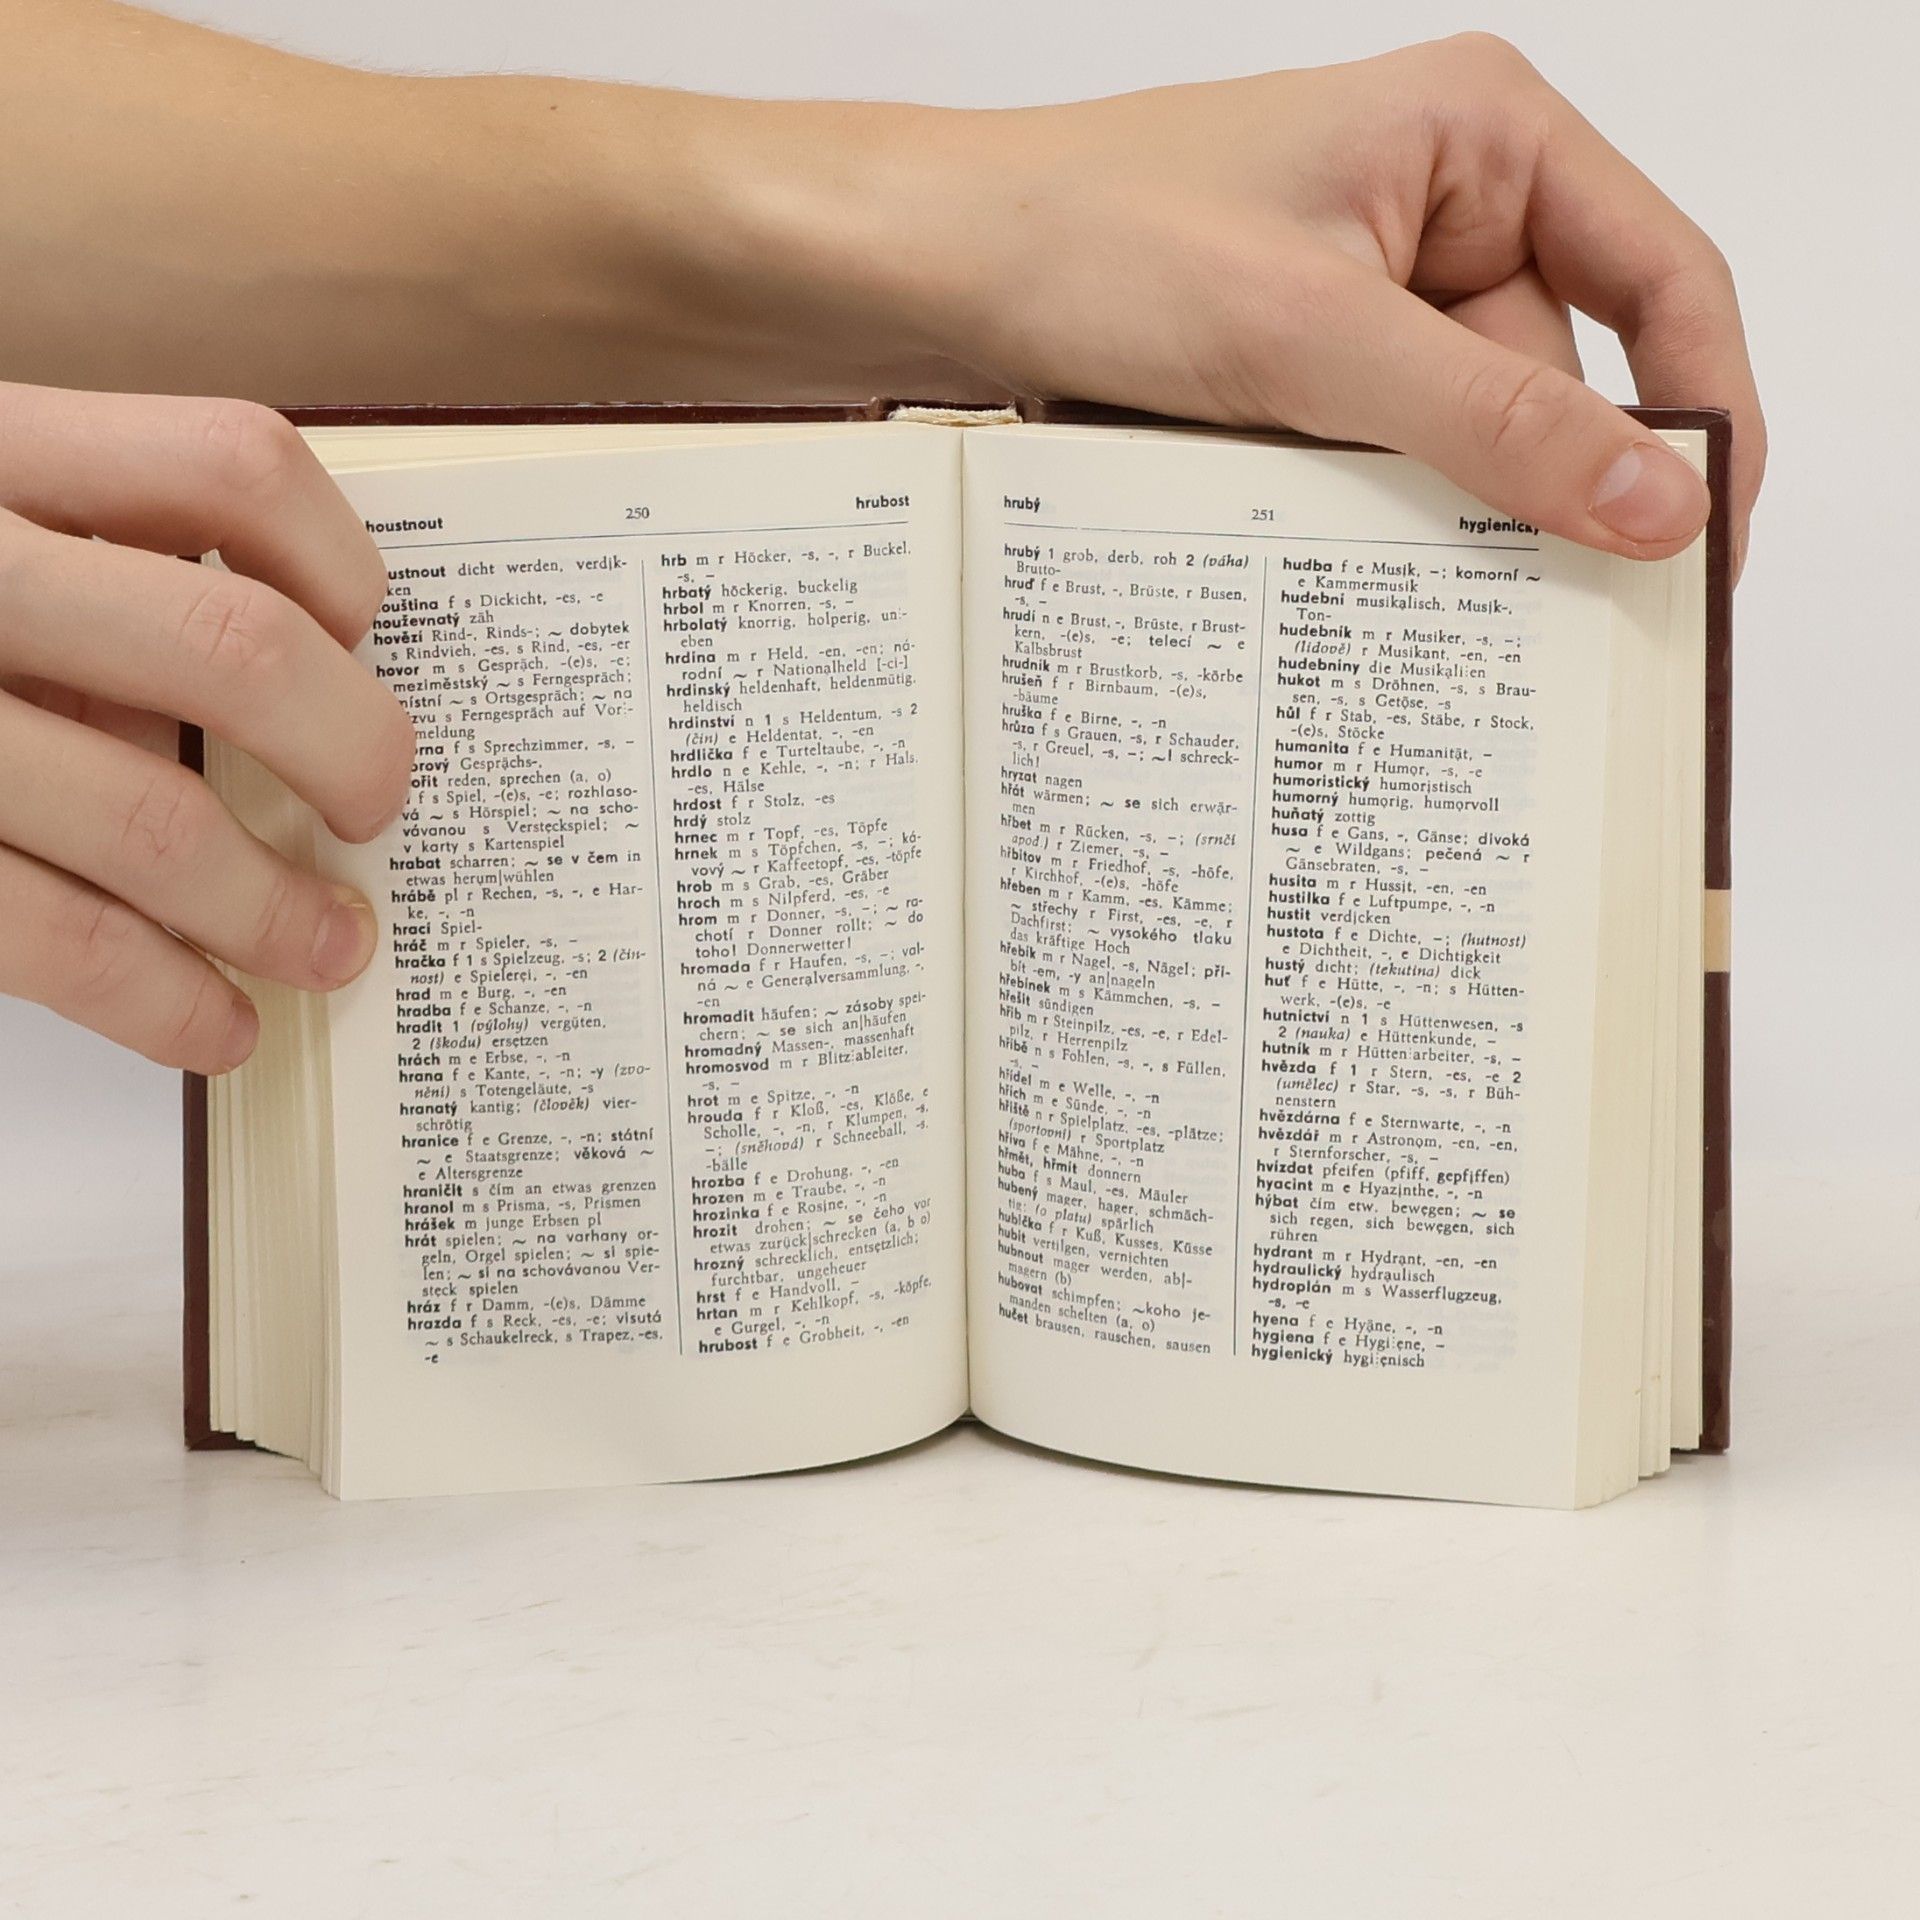 houstnout 250 hrubost
ustnout dicht werden, verdik-
ken
ouština f s Dickicht, -es, -e
houževnatý zäh
hovězí Rind-, Rinds-; ~ dobytek
s Rindvieh, -es, s Rind, -es, -er
hovor m s Gespräch, -(e)s, -e;
meziměstský ~ s Ferngespräch;
místní ~ s Ortsgespräch; ~ na
zvu s Ferngespräch auf Vor-
meldung
rna f s Sprechzimmer, -s, –
orový Gesprächs-,
ořit reden, sprechen (a, o)
f s Spiel, -(e)s, -e; rozhlaso-
vá ~ s Hörspiel; ~ na scho-
vávanou s Versteckspiel; ~
v karty s Kartenspiel
hrabat scharren; ~ se v čem in
etwas herum|wühlen
hrábě pl r Rechen, -s, -, e Har-
ke, -, -n
hrací Spiel-
hráč m r Spieler, -s, –
hračka f 1 s Spielzeug, -s; 2 (čin-
nost) e Spielerei, -, -en
hrad m e Burg, -, -en
hradba f e Schanze, -, -n
hradit 1 (výlohy) vergüten,
2 (škodu) ersetzen
hrách m e Erbse, -, -n
hrana f e Kante, -, -n; -y (zvo-
nění) s Totengeläute, -s
hranatý kantig; (člověk) vier-
schrötig
hranice f e Grenze, -, -n; státní
~ e Staatsgrenze; věková ~
e Altersgrenze
hraničit s čím an etwas grenzen
hranol m s Prisma, -s, Prismen
hrášek m junge Erbsen pl
hrát spielen; ~ na varhany or-
geln, Orgel spielen; ~ si spie-
len; ~ si na schovávanou Ver-
steck spielen
hráz f r Damm, -(e)s, Dämme
hrazda f s Reck, -es, -e; visutá
~ s Schaukelreck, s Trapez, -es,
-e
hrb m r Höcker, -s, -, r Buckel,
-s, –
hrbatý höckerig, buckelig
hrbol m r Knorren, -s, –
hrbolatý knorrig, holperig, un-
eben
hrdina m r Held, -en, -en; ná-
rodní ~ r Nationalheld [-ci-]
hrdinský heldenhaft, heldenmütig,
heldisch
hrdinství n 1 s Heldentum, -s 2
(čin) e Heldentat, -, -en
hrdlička f e Turteltaube, -, -n
hrdlo n e Kehle, -, -n; r Hals,
-es, Hälse
hrdost f r Stolz, -es
hrdý stolz
hrnec m r Topf, -es, Töpfe
hrnek m s Töpfchen, -s, –; ká-
vový ~ r Kaffeetopf, -es, -töpfe
hrob m s Grab, -es, Gräber
hroch m s Nilpferd, -es, -e
hrom m r Donner, -s, –; ~ ra-
chotí r Donner rollt; ~ do
toho! Donnerwetter!
hromada f r Haufen, -s, –; val-
ná ~ e Generalversammlung, -,
-en
hromadit häufen; ~ zásoby spei-
chern; ~ se sich an|häufen
hromadný Massen-, massenhaft
hromosvod m r Blitzableiter,
-s, –
hrot m e Spitze, -, -n
hrouda f r Kloß, -es, Klöße, e
Scholle, -, -n, r Klumpen, -s,
–; (sněhová) r Schneeball, -s,
-bälle
hrozba f e Drohung, -, -en
hrozen m e Traube, -, -n
hrozinka f e Rosine, -, -n
hrozit drohen; ~ se čeho vor
etwas zurück|schrecken (a, b o)
hrozný schrecklich, entsetzlich;
furchtbar, ungeheuer
hrst f e Handvoll, –
hrtan m r Kehlkopf, -s, -köpfe,
e Gurgel, -, -n
hrubost f e Grobheit, -, -en
hrubý 251 hygienický
hrubý 1 grob, derb, roh 2 (váha)
Brutto-
hruď f e Brust, -, Brüste, r Busen,
-s, –
hrudí n e Brust, -, Brüste, r Brust-
kern, -(e)s, -e; telecí ~ e
Kalbsbrust
hrudník m r Brustkorb, -s, -körbe
hrušeň f r Birnbaum, -(e)s,
-bäume
hruška f e Birne, -, -n
hrůza f s Grauen, -s, r Schauder,
-s, r Greuel, -s, –; ~! schreck-
lich!
hryzat nagen
hřát wärmen; ~ se sich erwär-
men
hřbet m r Rücken, -s, –; (srnčí
apod.) r Ziemer, -s, –
hřbitov m r Friedhof, -s, -höfe,
r Kirchhof, -(e)s, -höfe
hřeben m r Kamm, -es, Kämme;
~ střechy r First, -es, -e, r
Dachfirst; ~ vysokého tlaku
das kräftige Hoch
hřebík m r Nagel, -s, Nägel; při-
bít -em, -y an|nageln
hřebínek m s Kämmchen, -s, –
hřešit sündigen
hřib m r Steinpilz, -es, -e, r Edel-
pilz, r Herrenpilz
hříbě n s Fohlen, -s, -, s Füllen,
-s, –
hřídel m e Welle, -, -n
hřích m e Sünde, -, -n
hřiště n r Spielplatz, -es, -plätze;
(sportovní) r Sportplatz
hříva f e Mähne, -, -n
hřmět, hřmít donnern
huba f s Maul, -es, Mäuler
hubený mager, hager, schmäch-
tig; (o platu) spärlich
hubička f r Kuß, Kusses, Küsse
hubit vertilgen, vernichten
hubnout mager werden, ab|-
magern (b)
hubovat schimpfen; ~koho je-
manden schelten (a, o)
hučet brausen, rauschen, sausen
hudba f e Musik, –; komorní ~
e Kammermusik
hudební musikalisch, Musik-,
Ton-
hudebník m r Musiker, -s, –;
(lidově) r Musikant, -en, -en
hudebniny die Musikalien
hukot m s Dröhnen, -s, s Brau-
sen, -s, s Getöse, -s
hůl f r Stab, -es, Stäbe, r Stock,
-(e)s, Stöcke
humanita f e Humanität, –
humor m r Humor, -s, -e
humoristický humoristisch
humorný humorig, humorvoll
huňatý zottig
husa f e Gans, -, Gänse; divoká
~ e Wildgans; pečená ~ r
Gänsebraten, -s, –
husita m r Hussit, -en, -en
hustilka f e Luftpumpe, -, -n
hustit verdicken
hustota f e Dichte, –; (hutnost)
e Dichtheit, -, e Dichtigkeit
hustý dicht; (tekutina) dick
huť f e Hütte, -, -n; s Hütten-
werk, -(e)s, -e
hutnictví n 1 s Hüttenwesen, -s
2 (nauka) e Hüttenkunde, –
hutník m r Hüttenarbeiter, -s, –
hvězda f 1 r Stern, -es, -e 2
(umělec) r Star, -s, -s, r Büh-
nenstern
hvězdárna f e Sternwarte, -, -n
hvězdář m r Astronom, -en, -en,
r Sternforscher, -s, –
hvízdat pfeifen (pfiff, gepfiffen)
hyacint m e Hyazinthe, -, -n
hýbat čím etw. bewegen; ~ se
sich regen, sich bewegen, sich
rühren
hydrant m r Hydrant, -en, -en
hydraulický hydraulisch
hydroplán m s Wasserflugzeug,
-s, -e
hyena f e Hyäne, -, -n
hygiena f e Hygiene, –
hygienický hygienisch